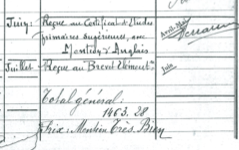 Juin: Reçue au Certificat d'Etudes
primaires Supérieures, avec
Mention d'Anglais
Juillet. Reçue au Brevet Elément.
Total général:
1463. 28
Prix: Mention Très Bien